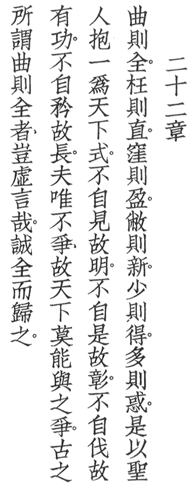 二十二章
曲則全。枉則直。窪則盈。敝則新。少則得。多則惑。是以聖
人抱一爲天下式。不自見故明。不自是故彰。不自伐故
有功。不自矜故長。夫唯不爭、故天下莫能與之爭。古之
所謂曲則全者、豈虛言哉。誠全而歸之。